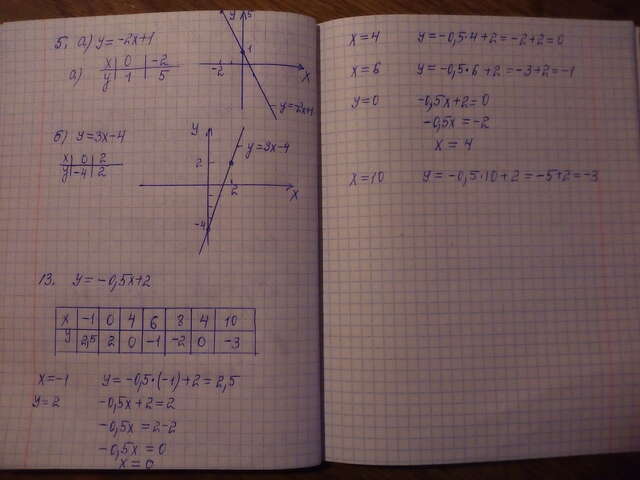 5. а) y=-2x+1
а) x 0 -2
y 1 5
y 5
1
-2 x
y=-2x+1
б) y=3x-4
x 0 2
y -4 2
y
y=3x-4
2
2 x
-4
13. y=-0,5x+2
x -1 0 4 6 8 4 10
y 2,5 2 0 -1 -2 0 -3
x=-1 y=-0,5·(-1)+2=2,5
y=2 -0,5x+2=2
-0,5x=2-2
-0,5x=0
x=0
x=4 y=-0,5·4+2=-2+2=0
x=6 y=-0,5·6+2=-3+2=-1
y=0 -0,5x+2=0
-0,5x=-2
x=4
x=10 y=-0,5·10+2=-5+2=-3